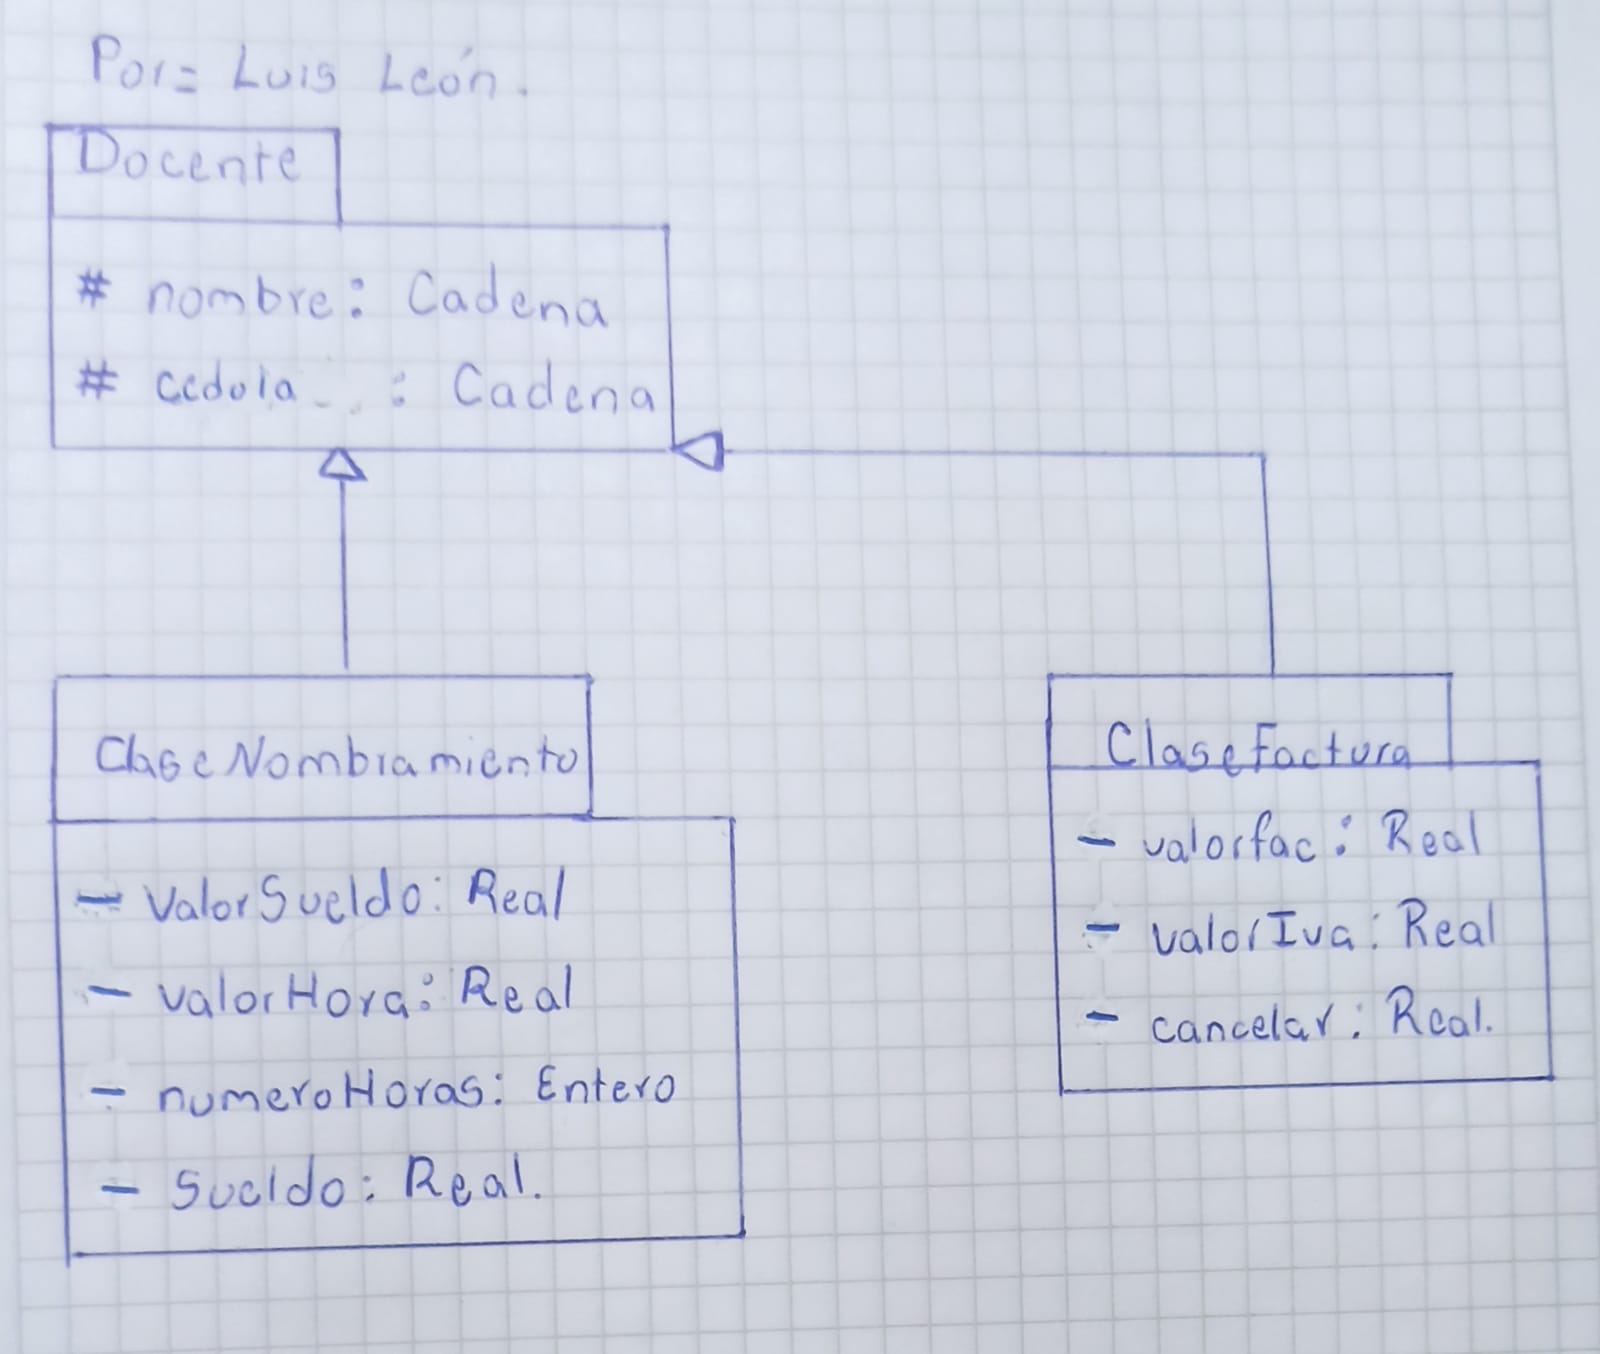 Por= Luis León.
Docente
# nombre: Cadena
# cedula : Cadena
Clase Nombramiento
- ValorSueldo: Real
- valorHora: Real
- numeroHoras: Entero
- Sueldo: Real.
ClaseFactura
- valorfac: Real
- valorIva: Real
- cancelar: Real.